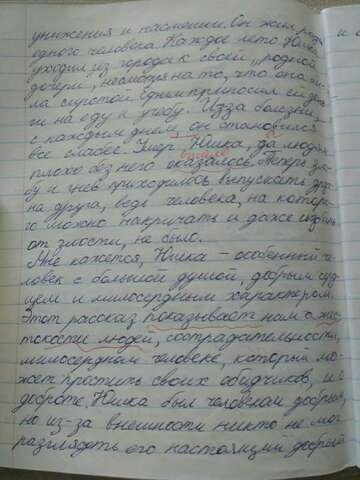 унижения и насмешки. Он жил ради
одного человека. Каждое лето Юшка
уходил из города к своей "родной
дочери", несмотря на то, что она бы-
ла сиротой. Ефим приносил ей день
ги на еду и учебу. Из за болезни,
с каждым днем, он становился
все слабее. Умер Юшка, да людям
плохо без него оказалось. Теперь зло
бу и гнев приходилось выпускать друг
на друга, ведь человека, на которо
го можно накричать и даже избить
от злости, не было.
Мне кажется, Юшка - особенный че
ловек с большой душой, добрым серд
цем и милосердным характером.
Этот рассказ показывает нам о жес
токости людей, сострадательности,
милосердном человеке, который мо-
жет простить своих обидчиков, и о
доброте. Юшка был человеком добрым,
но из-за внешности никто не мог
разглядеть его настоящий добрый